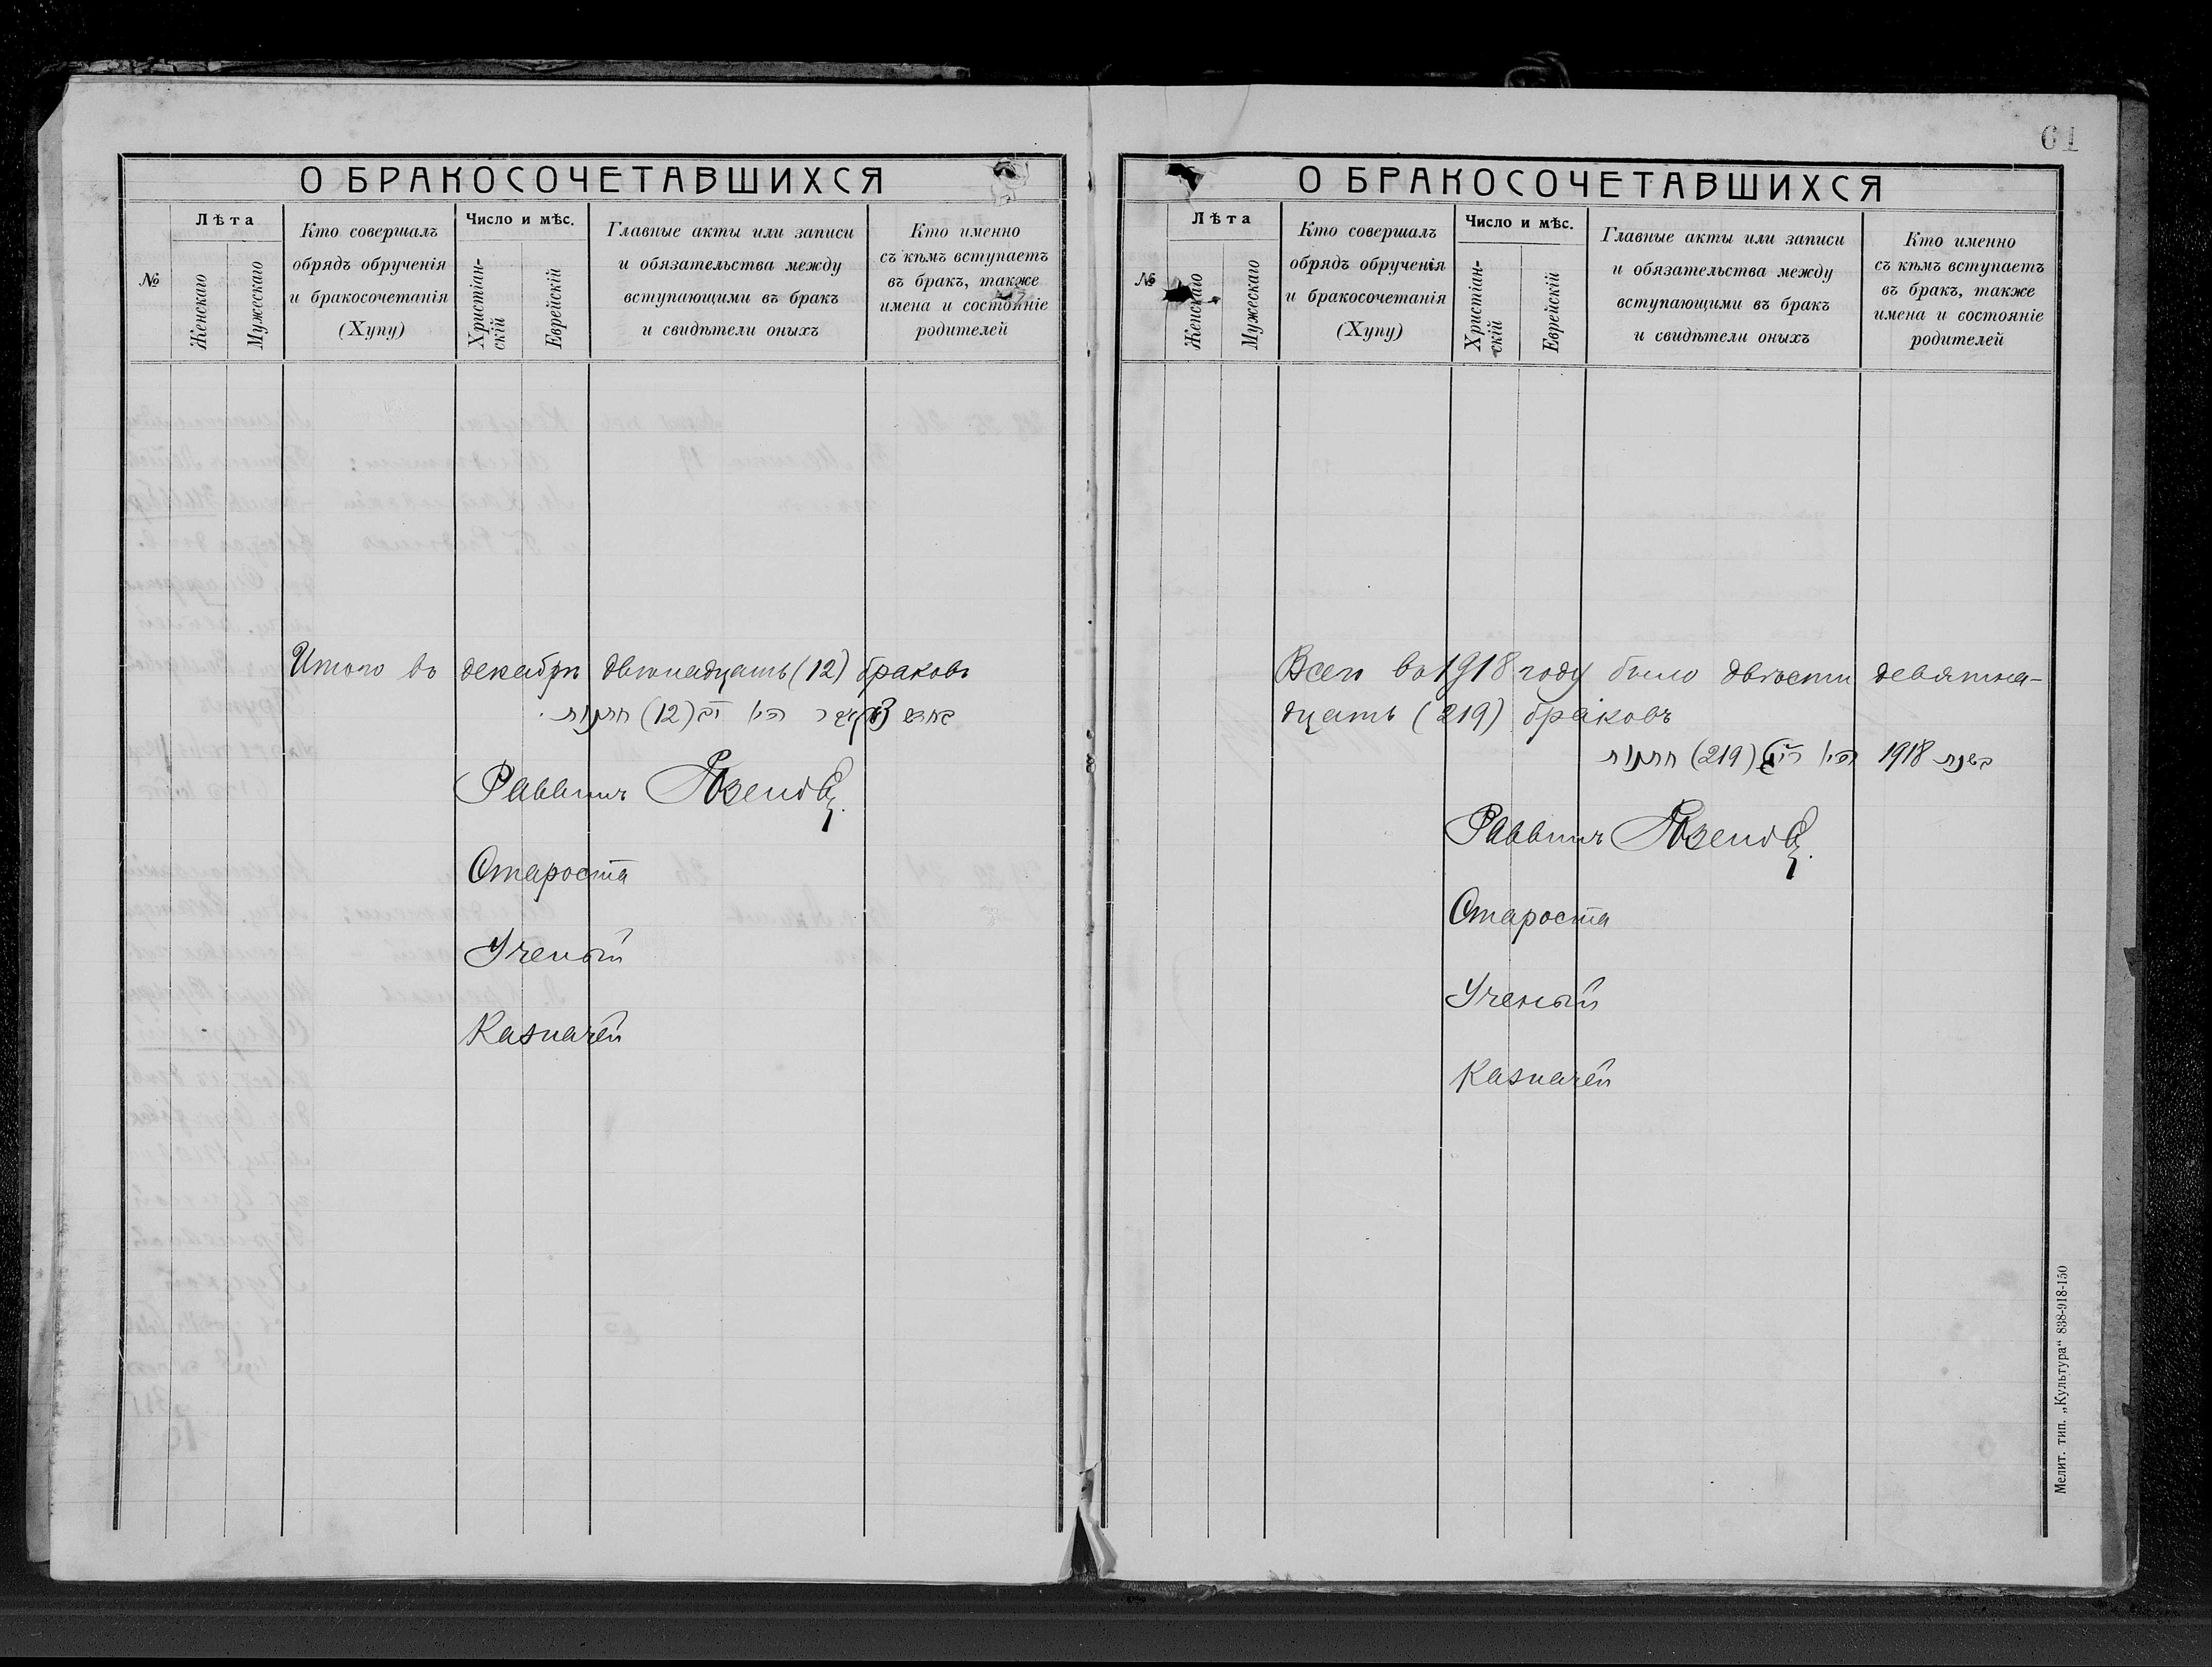 О БРАКОСОЧЕТАВШИХСЯ
№
Лѣта
Женскаго
Мужескаго
Кто совершалъ
обрядъ обрученія
и бракосочетанія
(Хупу)
Число и мѣс.
Христіан-
скій
Еврейскій
Главные акты или записи
и обязательства между
вступающими въ бракъ
и свидѣтели оныхъ
Кто именно
съ кѣмъ вступаетъ
въ бракъ, также
имена и состояніе
родителей
Итого въ декабрѣ двѣнадцать (12) браковъ
היו יב (12) חתונות
Раввинъ
Староста
Ученый
Казначей
61
О БРАКОСОЧЕТАВШИХСЯ
№
Лѣта
Женскаго
Мужескаго
Кто совершалъ
обрядъ обрученія
и бракосочетанія
(Хупу)
Число и мѣс.
Христіан-
скій
Еврейскій
Главные акты или записи
и обязательства между
вступающими въ бракъ
и свидѣтели оныхъ
Кто именно
съ кѣмъ вступаетъ
въ бракъ, также
имена и состояніе
родителей
Всего въ 1918 году было двѣсти девятна-
дцать (219) браковъ
בשנת 1918 היו (219) חתונות
Раввинъ
Староста
Ученый
Казначей
Мелит. тип. „Культура“ 838-918-150